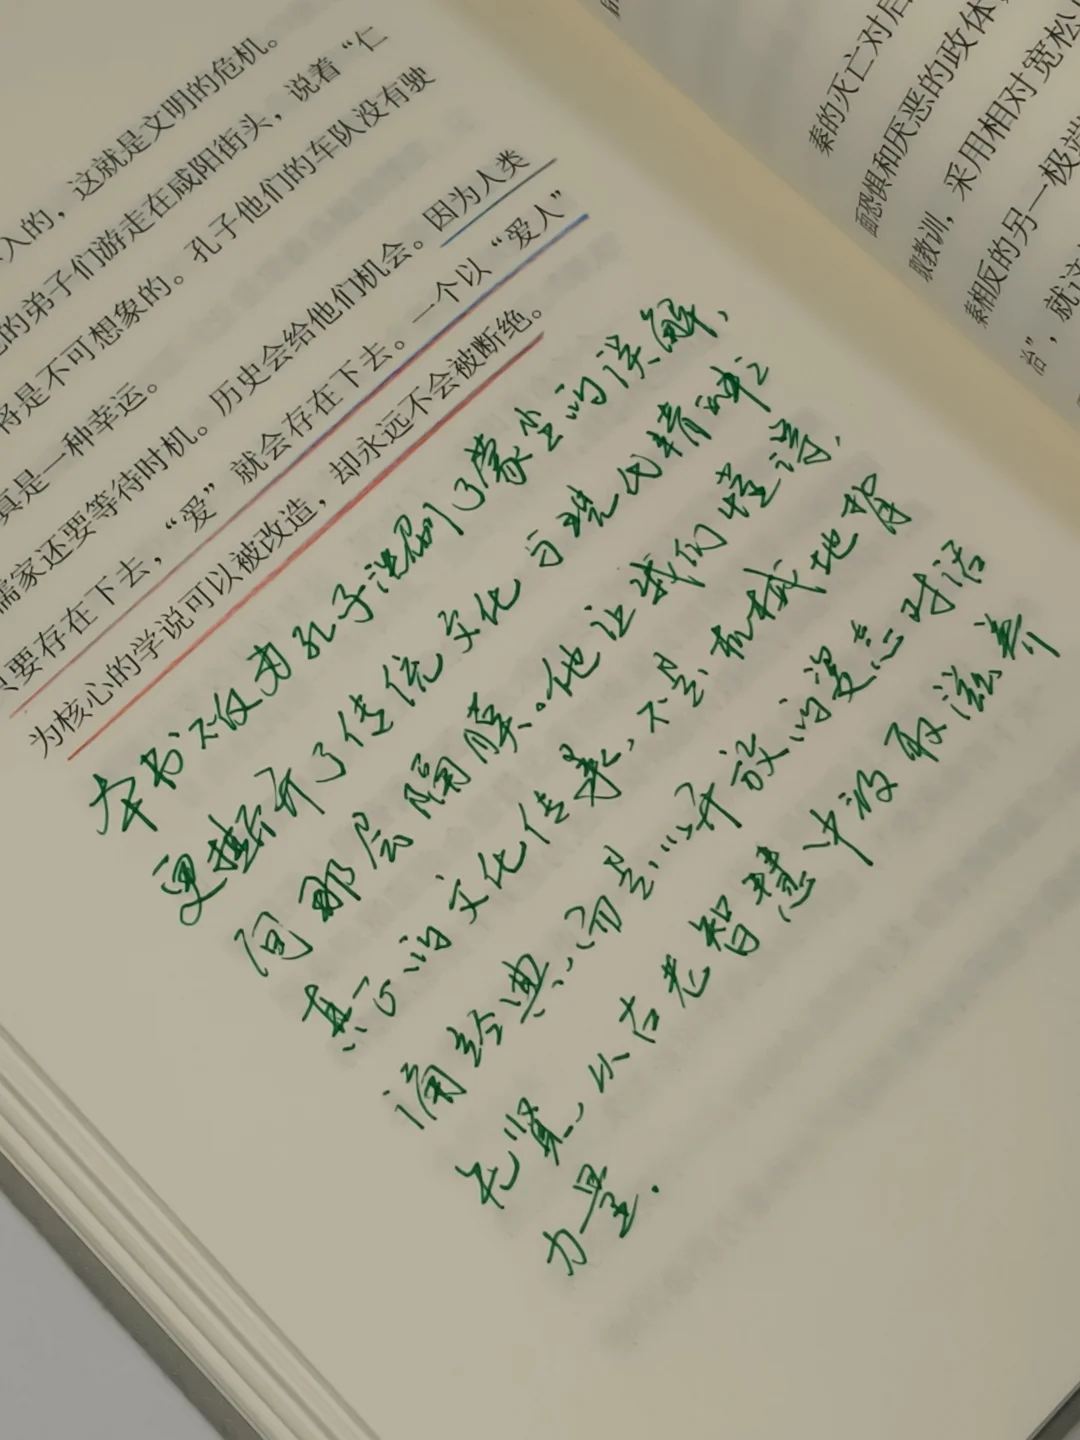 入的，这就是文明的危机。
的弟子们游走在咸阳街头，说着“仁
将是不可想象的。孔子他们的车队没有驶
真是一种幸运。
儒家还要等待时机。历史会给他们机会。因为人类
只要存在下去，“爱”就会存在下去。一个以“爱人”
为核心的学说可以被改造，却永远不会被断绝。
本书不仅为孔子洗刷了蒙尘的误解，
更撕开了传统文化与现代精神之
间那层隔膜。他让我们懂得，
真正的文化传承，不是机械地背
诵经典，而是以开放的姿态对话
先贤，从古老智慧中汲取滋养
力量.
秦的灭亡对后
面恐惧和厌恶的政体
职教训，采用相对宽松
秦相反的另一极端
治”，就这